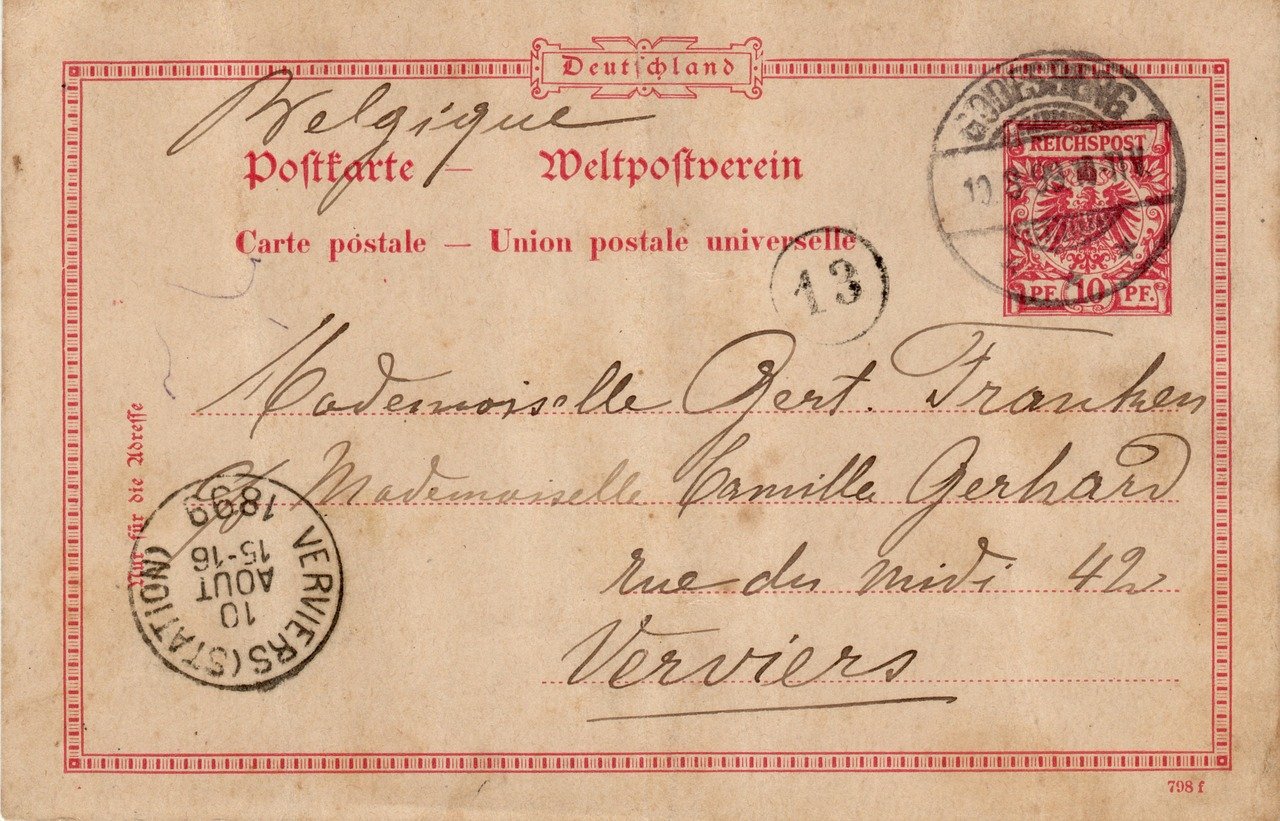 Deutschland
Belgique
Postkarte — Weltpostverein
Carte postale — Union postale universelle
GODESBERG
10. 8 99 10-11 V.
REICHSPOST
PF. 10 PF.
13
Mademoiselle Gert. Franken
c/o Mademoiselle Camille Gerhard
rue du midi 42
Verviers
Nur für die Adresse
VERVIERS (STATION)
10
AOUT
15-16
1899
798 f